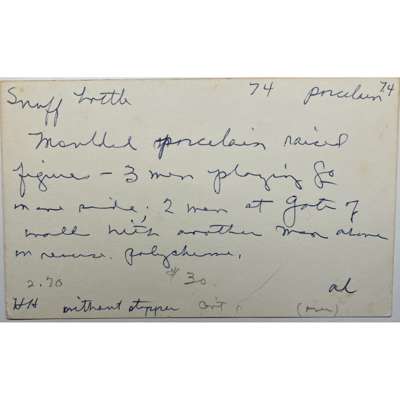 Snuff bottle 74 porcelain 74
Moulded porcelain raised
figures - 3 men playing Go
on one side; 2 men at gate of
wall with another man above
on reverse. polychrome.
2.70 $30. al
HH without stopper (over)